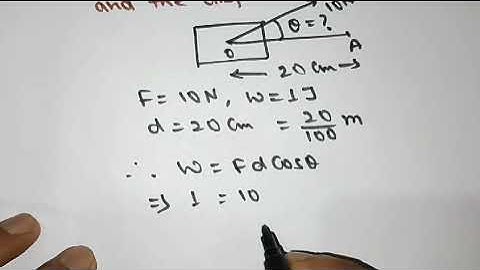 and the
10N
θ = ?
O
A
20 cm
F = 10N, W = 1J
d = 20 cm = 20/100 m
∴ W = Fd cosθ
⇒ 1 = 10